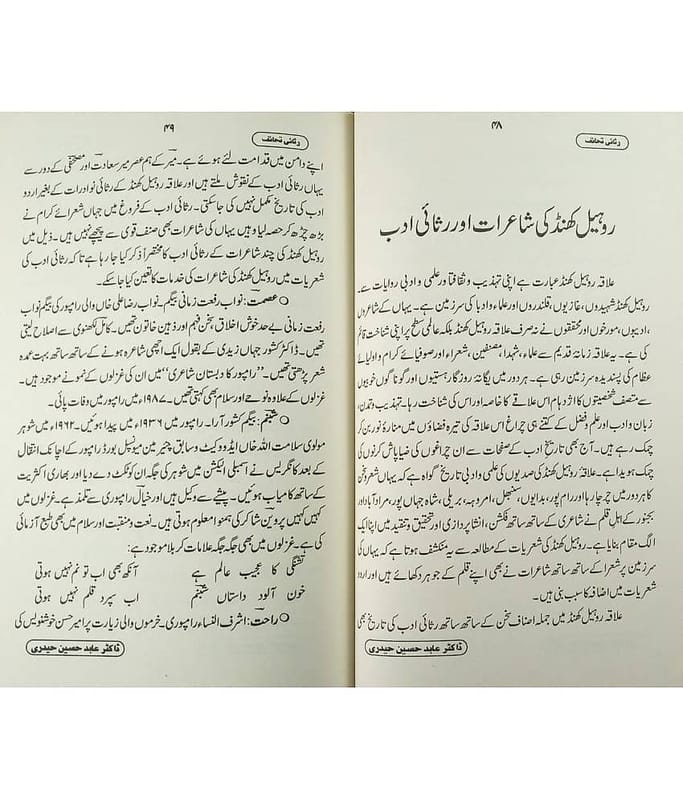 ۴۸
رثائی تحائف
روہیل کھنڈ کی شاعرات اور رثائی ادب
علاقہ روہیل کھنڈ عبارت ہے اپنی تہذیب و ثقافت اور علمی و ادبی روایات سے۔
روہیل کھنڈ شہیدوں، غازیوں، قلندروں اور علماء و ادبا کی سرزمین ہے۔ یہاں کے شاعروں
، ادیبوں، مورخوں اور محققوں نے نہ صرف علاقہ روہیل کھنڈ بلکہ عالمی سطح پر اپنی شناخت قائم
کی ہے۔ یہ علاقہ زمانہ قدیم سے علماء، شہدا، مصنفین، شعراء اور صوفیائے کرام و اولیائے
عظام کی پسندیدہ سرزمین رہی ہے۔ ہر دور میں یگانۂ روزگار ہستیوں اور گوناگوں خوبیوں
سے متصف شخصیتوں کا اژدہام اس علاقے کا خاصہ اور اس کی شناخت رہا۔ تہذیب و تمدن،
زبان و ادب اور علم و فضل کے کتنے ہی چراغ اس علاقہ کی تیرہ فضاؤں میں منارۂ نور بن کر
چمک رہے ہیں۔ آج بھی تاریخ ادب کے صفحات سے ان چراغوں کی ضیا پاش کرنوں کی
چمک ہویدا ہے۔ علاقہ روہیل کھنڈ کی صدیوں کی علمی و ادبی تاریخ گواہ ہے کہ یہاں شعر و سخن
کا ہر دور میں چرچا رہا اور رام پور، بدایوں، سنبھل، امروہہ، بریلی، شاہ جہاں پور، مرادآباد اور
بجنور کے اہل قلم نے شاعری کے ساتھ ساتھ فکشن، انشا پردازی اور تحقیق و تنقید میں اپنا ایک
الگ مقام بنایا ہے۔ روہیل کھنڈ کی شعریات کے مطالعہ سے یہ منکشف ہوتا ہے کہ یہاں کی
سرزمین پر شعرا کے ساتھ ساتھ شاعرات نے بھی اپنے قلم کے جوہر دکھائے ہیں اور اردو
شعریات میں اضافہ کا سبب بنی ہیں۔
علاقہ روہیل کھنڈ میں جملہ اصناف سخن کے ساتھ ساتھ رثائی ادب کی تاریخ بھی
ڈاکٹر عابد حسین حیدری
۴۹
رثائی تحائف
اپنے دامن میں قدامت لئے ہوئے ہے۔ میرؔ کے ہم عصر میر سعادتؔ اور مصحفیؔ کے دور سے
یہاں رثائی ادب کے نقوش ملتے ہیں اور علاقہ روہیل کھنڈ کے رثائی نوادرات کے بغیر اردو
ادب کی تاریخ مکمل نہیں کی جاسکتی۔ رثائی ادب کے فروغ میں جہاں شعرائے کرام نے
بڑھ چڑھ کر حصہ لیا وہیں یہاں کی شاعرات بھی صنف قوی سے پیچھے نہیں ہیں۔ ذیل میں
روہیل کھنڈ کی چند شاعرات کے رثائی ادب کا مختصراً ذکر کیا جا رہا ہے تا کہ رثائی ادب کی
شعریات میں روہیل کھنڈ کی شاعرات کی خدمات کا تعین کیا جاسکے۔
○ عصمتؔ: نواب رفعت زمانی بیگم۔ نواب رضا علی خاں والی رامپور کی بیگم نواب
رفعت زمانی بے حد خوش اخلاق، سخن فہم اور ذہین خاتون تھیں۔ کاملؔ لکھنوی سے اصلاح لیتی
تھیں۔ ڈاکٹر کشور جہاں زیدی کے بقول ایک اچھی شاعرہ ہونے کے ساتھ ساتھ بہت عمدہ
شعر پڑھتی تھیں۔ ”رامپور کا دبستان شاعری“ میں ان کی غزلوں کے نمونے موجود ہیں۔
غزلوں کے علاوہ نوحے اور سلام بھی کہتی تھیں۔ ۱۹۸۷ء میں رامپور میں وفات پائی۔
○ شبنمؔ: بیگم کشور آرا۔ رامپور میں ۱۹۳۶ء میں پیدا ہوئیں۔ ۱۹۶۲ء میں شوہر
مولوی سلامت اللہ خاں ایڈووکیٹ وسابق چیئرمین میونسپل بورڈ رامپور کے اچانک انتقال
کے بعد کانگریس نے اسمبلی الیکشن میں شوہر کی جگہ ان کو ٹکٹ دے دیا اور بھاری اکثریت
کے ساتھ کامیاب ہوئیں۔ پیشے سے وکیل ہیں اور خیالؔ رامپوری سے تلمذ ہے۔ غزلوں میں
کہیں کہیں پروین شاکر کی ہمنوا معلوم ہوتی ہیں۔ نعت و منقبت اور سلام میں بھی طبع آزمائی
کی ہے۔ غزلوں میں بھی جگہ جگہ علامات کربلا موجود ہے:
تشنگی کا عجیب عالم ہے آنکھ بھی اب تو نم نہیں ہوتی
خون آلود داستاں شبنمؔ اب سپرد قلم نہیں ہوتی
○ راحت: اشرف النساء رامپوری۔ خرموں والی زیارت پر امیر حسن خوشنویس کی
ڈاکٹر عابد حسین حیدری